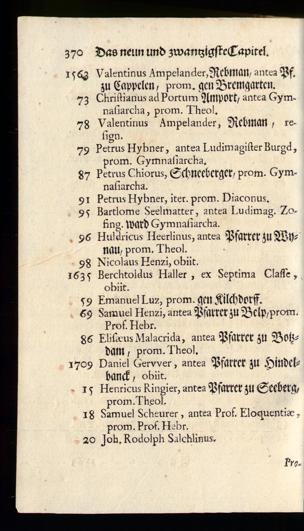 370 Das neun und zwanzigste Capitel.
1563 Valentinus Ampelander, Rebman/ antea Pf.
zu Cappelen/ prom. gen Bremgarten.
73 Christianus ad Portum Amport/ antea Gym-
nasiarcha, prom. Theol.
78 Valentinus Ampelander, Rebman / re-
sign.
79 Petrus Hybner, antea Ludimagister Burgd,
prom. Gymnasiarcha.
87 Petrus Chiorus, Schneeberger/ prom. Gym-
nasiarcha.
91 Petrus Hybner, iter. prom. Diaconus.
95 Bartlome Seelmatter, antea Ludimag. Zo-
fing. ward Gymnasiarcha.
96 Huldricus Heerlinus, antea Pfarrer zu Wy-
nau/ prom. Theol.
98 Nicolaus Henzi, obiit.
1635 Berchtoldus Haller, ex Septima Classe,
obiit.
59 Emanuel Luz, prom. gen Kilchdorff.
69 Samuel Henzi, antea Pfarrer zu Belp/ prom.
Prof. Hebr.
86 Elisæus Malacrida, antea Pfarrer zu Botz-
dam/ prom. Theol.
1709 Daniel Gervver, antea Pfarrer zu Hindel-
banck/ obiit.
15 Henricus Ringier, antea Pfarrer zu Seeberg/
prom. Theol.
18 Samuel Scheurer, antea Prof. Eloquentiæ,
prom. Prof. Hebr.
20 Joh. Rodolph Salchlinus.
Pro-